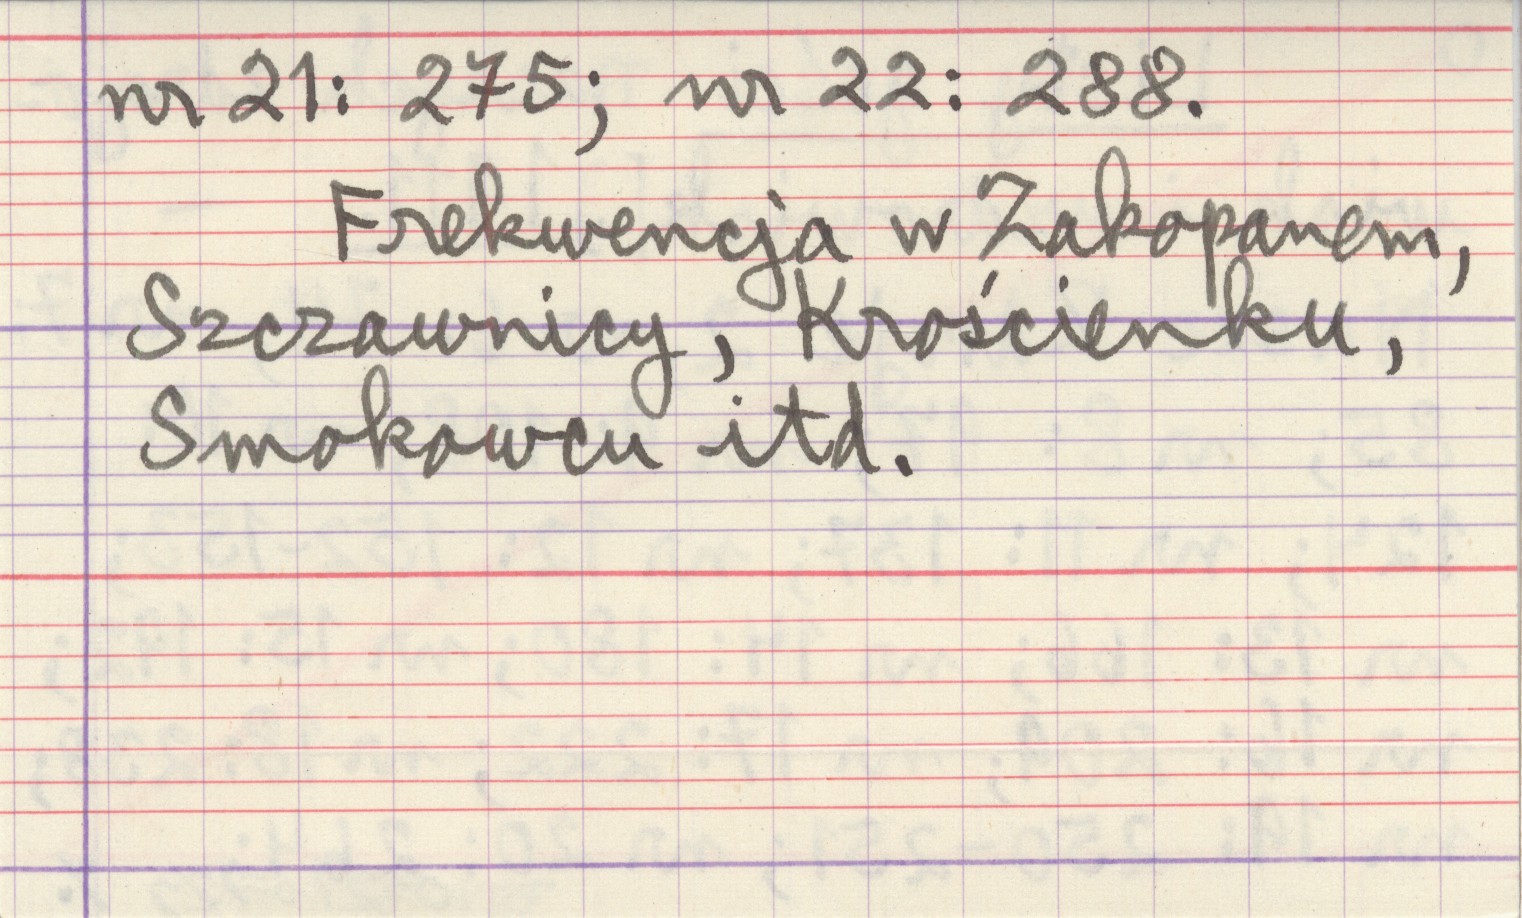 nr 21: 275; nr 22: 288.
Frekwencja w Zakopanem,
Szczawnicy, Krościenku,
Smokowcu itd.